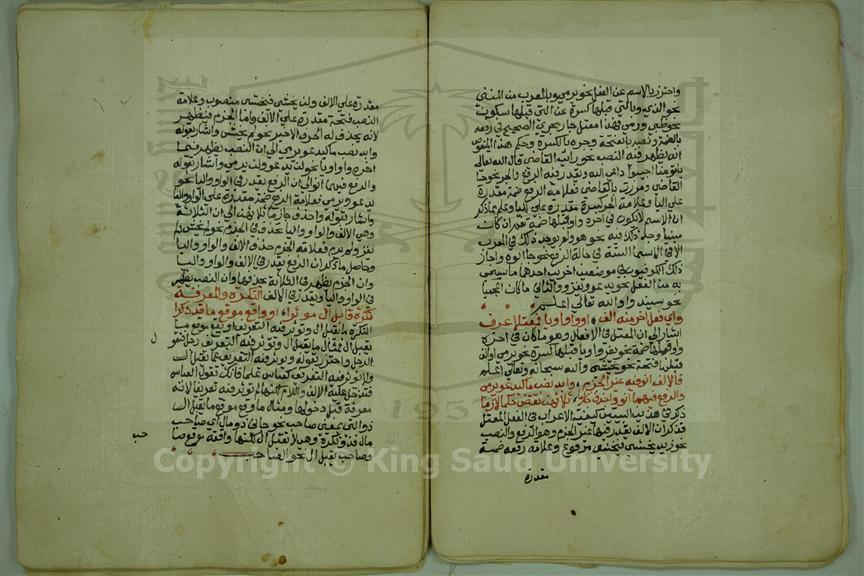 واحترز بالاسم عن الفعل نحو يرمي وبالمعرب من المبني
نحو الذي وبالتي قبلها كسرة عن التي قبلها سكون
نحو ظبي ورمي فهذا معتل جار مجرى الصحيح في رفعه
بالضمة ونصبه بالفتحة وجره بالكسرة وحكم هذا المنقوص
انه يظهر فيه النصب نحو رايت القاضي قال الله تعالى
يا قومنا اجيبوا داعي الله ويقدر فيه الرفع والجر نحو جا
القاضي ومررت بالقاضي فعلامة الرفع ضمة مقدرة
على اليا وعلامة الجر كسرة مقدرة على اليا وعلم مما ذكر
ان الاسم لا يكون في اخره واو قبلها ضمة نعم ان كان
مبنيا وجد ذلك فيه نحو هو ولم يوجد ذلك في المعرب
الا في الاسما الستة في حالة الرفع نحو جا ابوه واجاز
ذلك الكوفيون في موضعين اخرين احدهما ما سمي
به من الفعل نحو يدعو ويغزو والثاني ما كان اعجميا
نحو سمندو والله تعالى اعلم
واي فعل اخر منه الف او واو او يا فمعتلا عرف
اشار الى ان المعتل من الافعال هو ما كان في اخره
واو قبلها ضمة نحو يغزو او يا قبلها كسرة نحو يرمي او الف
قبلها فتحة نحو يخشى والله سبحانه وتعالى اعلم
فالالف انو فيه غير الجزم وابد نصب ما كيدعو يرمي
والرفع فيهما انو واحذف جازما ثلاثهن تقض حكما لازما
ذكر في هذين البيتين كيفية الاعراب في الفعل المعتل
فذكر ان الالف يقدر فيها غير الجزم وهو الرفع والنصب
نحو زيد يخشى فيخشى مرفوع وعلامة رفعه ضمة
مقدرة
مقدرة على الالف ولن يخشى فيخشى منصوب وعلامة
النصب فتحة مقدرة على الالف واما الجزم فيظهر
لانه يحذف له الحرف الاخير نحو لم يخش واشار بقوله
وابد نصب ما كيدعو يرمي الى ان النصب يظهر فيما
اخره واو او يا نحو لن يدعو ولن يرمي واشار بقوله
والرفع فيهما انو الى ان الرفع يقدر في الواو واليا نحو
يدعو ويرمي فعلامة الرفع ضمة مقدرة على الواو واليا
واشار بقوله واحذف جازما ثلاثهن الى ان الثلاثة
وهي الالف والواو واليا تحذف في الجزم نحو لم يخش ولم
يغز ولم يرم فعلامة الجزم حذف الالف والواو واليا
وحاصل ما ذكر ان الرفع يقدر في الالف والواو واليا
وان الجزم يظهر في الثلاثة بحذفها وان النصب يظهر
في الواو واليا ويقدر في الالف النكرة والمعرفة
نكرة قابل ال موثرا او واقع موقع ما قد ذكرا
النكرة ما يقبل ال وتوثر فيه التعريف او يقع موقع ما
يقبل ال فمثال ما يقبل ال وتوثر فيه التعريف رجل فتقول
الرجل واحترز بقوله وتوثر فيه التعريف مما يقبل ال
ولا توثر فيه التعريف كعباس علما فانك تقول العباس
فتدخل عليه الالف واللام لكنها لم توثر فيه تعريفا لانه
معرفة قبل دخولها ومثال ما وقع موقع ما يقبل ال
ذو التي بمعنى صاحب نحو جاني ذو مال اي صاحب
مال فذو نكرة وهي لا تقبل ال لكنها واقعة موقع صا
حب
وصاحب يقبل ال نحو الصاحب
Copyright © King Saud University
1957